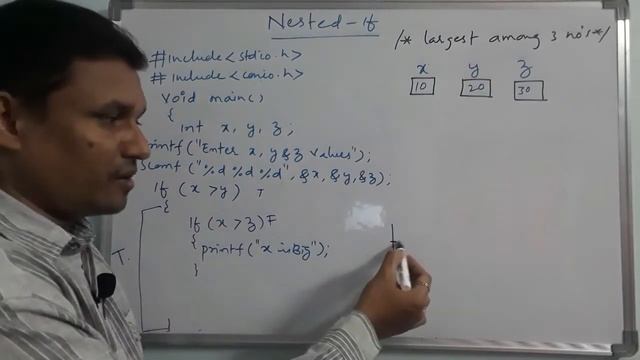 Nested-if
/* largest among 3 no's */
#include<stdio.h>
#include<conio.h>
void main()
{
int x, y, z;
printf("Enter x, y & z values");
scanf("%d %d %d", &x, &y, &z);
if (x >y) T
{
if (x > z) F
{ printf("x is Big");
}
T.
x y z
10 20 30